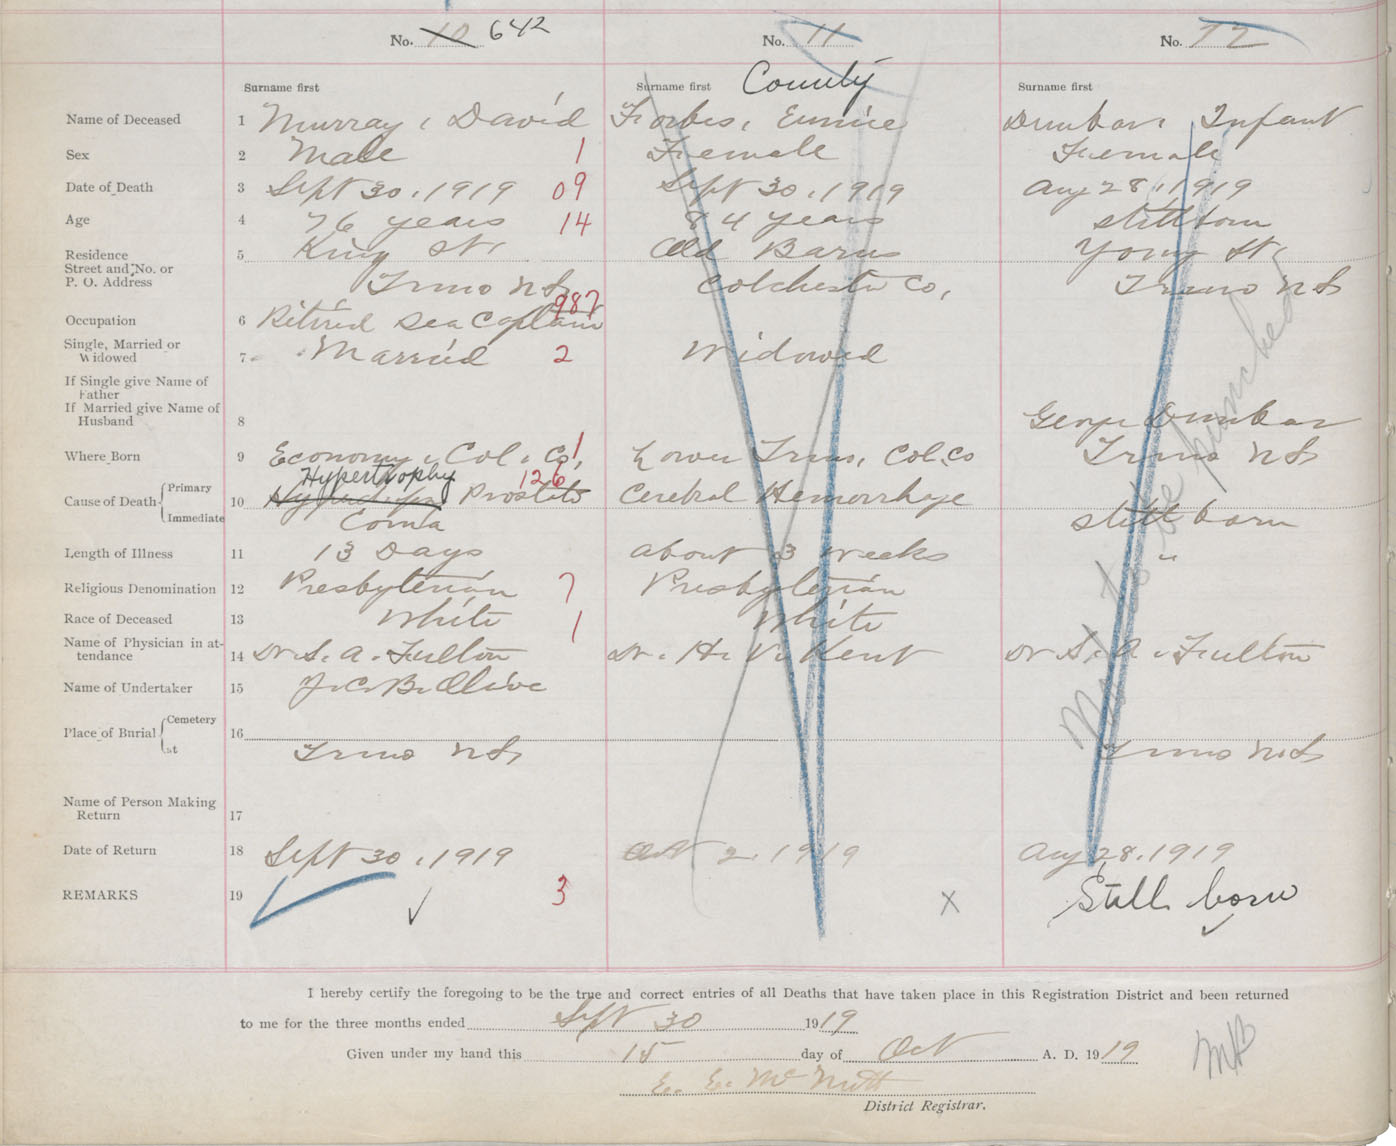 No. 10 642 No. 11 No. 12
Surname first Surname first County Surname first
Name of Deceased 1 Murray, David Forbes, Eunice Dunbar, Infant
Sex 2 Male 1 Female Female
Date of Death 3 Sept 30, 1919 09 Sept 30, 1919 Aug 28, 1919
Age 4 76 years 14 84 years stillborn
Residence 5 King St. Old Barns Young St.
Street and No. or
P. O. Address Truro NS Colchester Co, Truro NS
987
Occupation 6 Retired Sea Captain
Single, Married or
Widowed 7 Married 2 Widowed
If Single give Name of
Father
If Married give Name of
Husband 8 George Dunbar
Where Born 9 Economy, Col. Co, 1 Lower Truro, Col. Co Truro NS
Hypertrophy 126
Cause of Death Primary 10 Prostate Cerebral Hemorrhage
Immediate Coma still born
Length of Illness 11 13 Days about 3 weeks "
Religious Denomination 12 Presbyterian 7 Presbyterian
Race of Deceased 13 White 1 White
Name of Physician in at-
tendance 14 Dr. S. A. Fulton Dr. H. V. Kent Dr S. A. Fulton
Name of Undertaker 15 J. C. B. Olive
Place of Burial Cemetery 16
at Truro NS Truro NS
Name of Person Making
Return 17
Date of Return 18 Sept 30, 1919 Oct 2, 1919 Aug 28, 1919
REMARKS 19 3 X Still born
Not to be punched
I hereby certify the foregoing to be the true and correct entries of all Deaths that have taken place in this Registration District and been returned
to me for the three months ended Sept 30 1919
Given under my hand this 15 day of Oct A. D. 1919
E. E. McNutt
District Registrar.